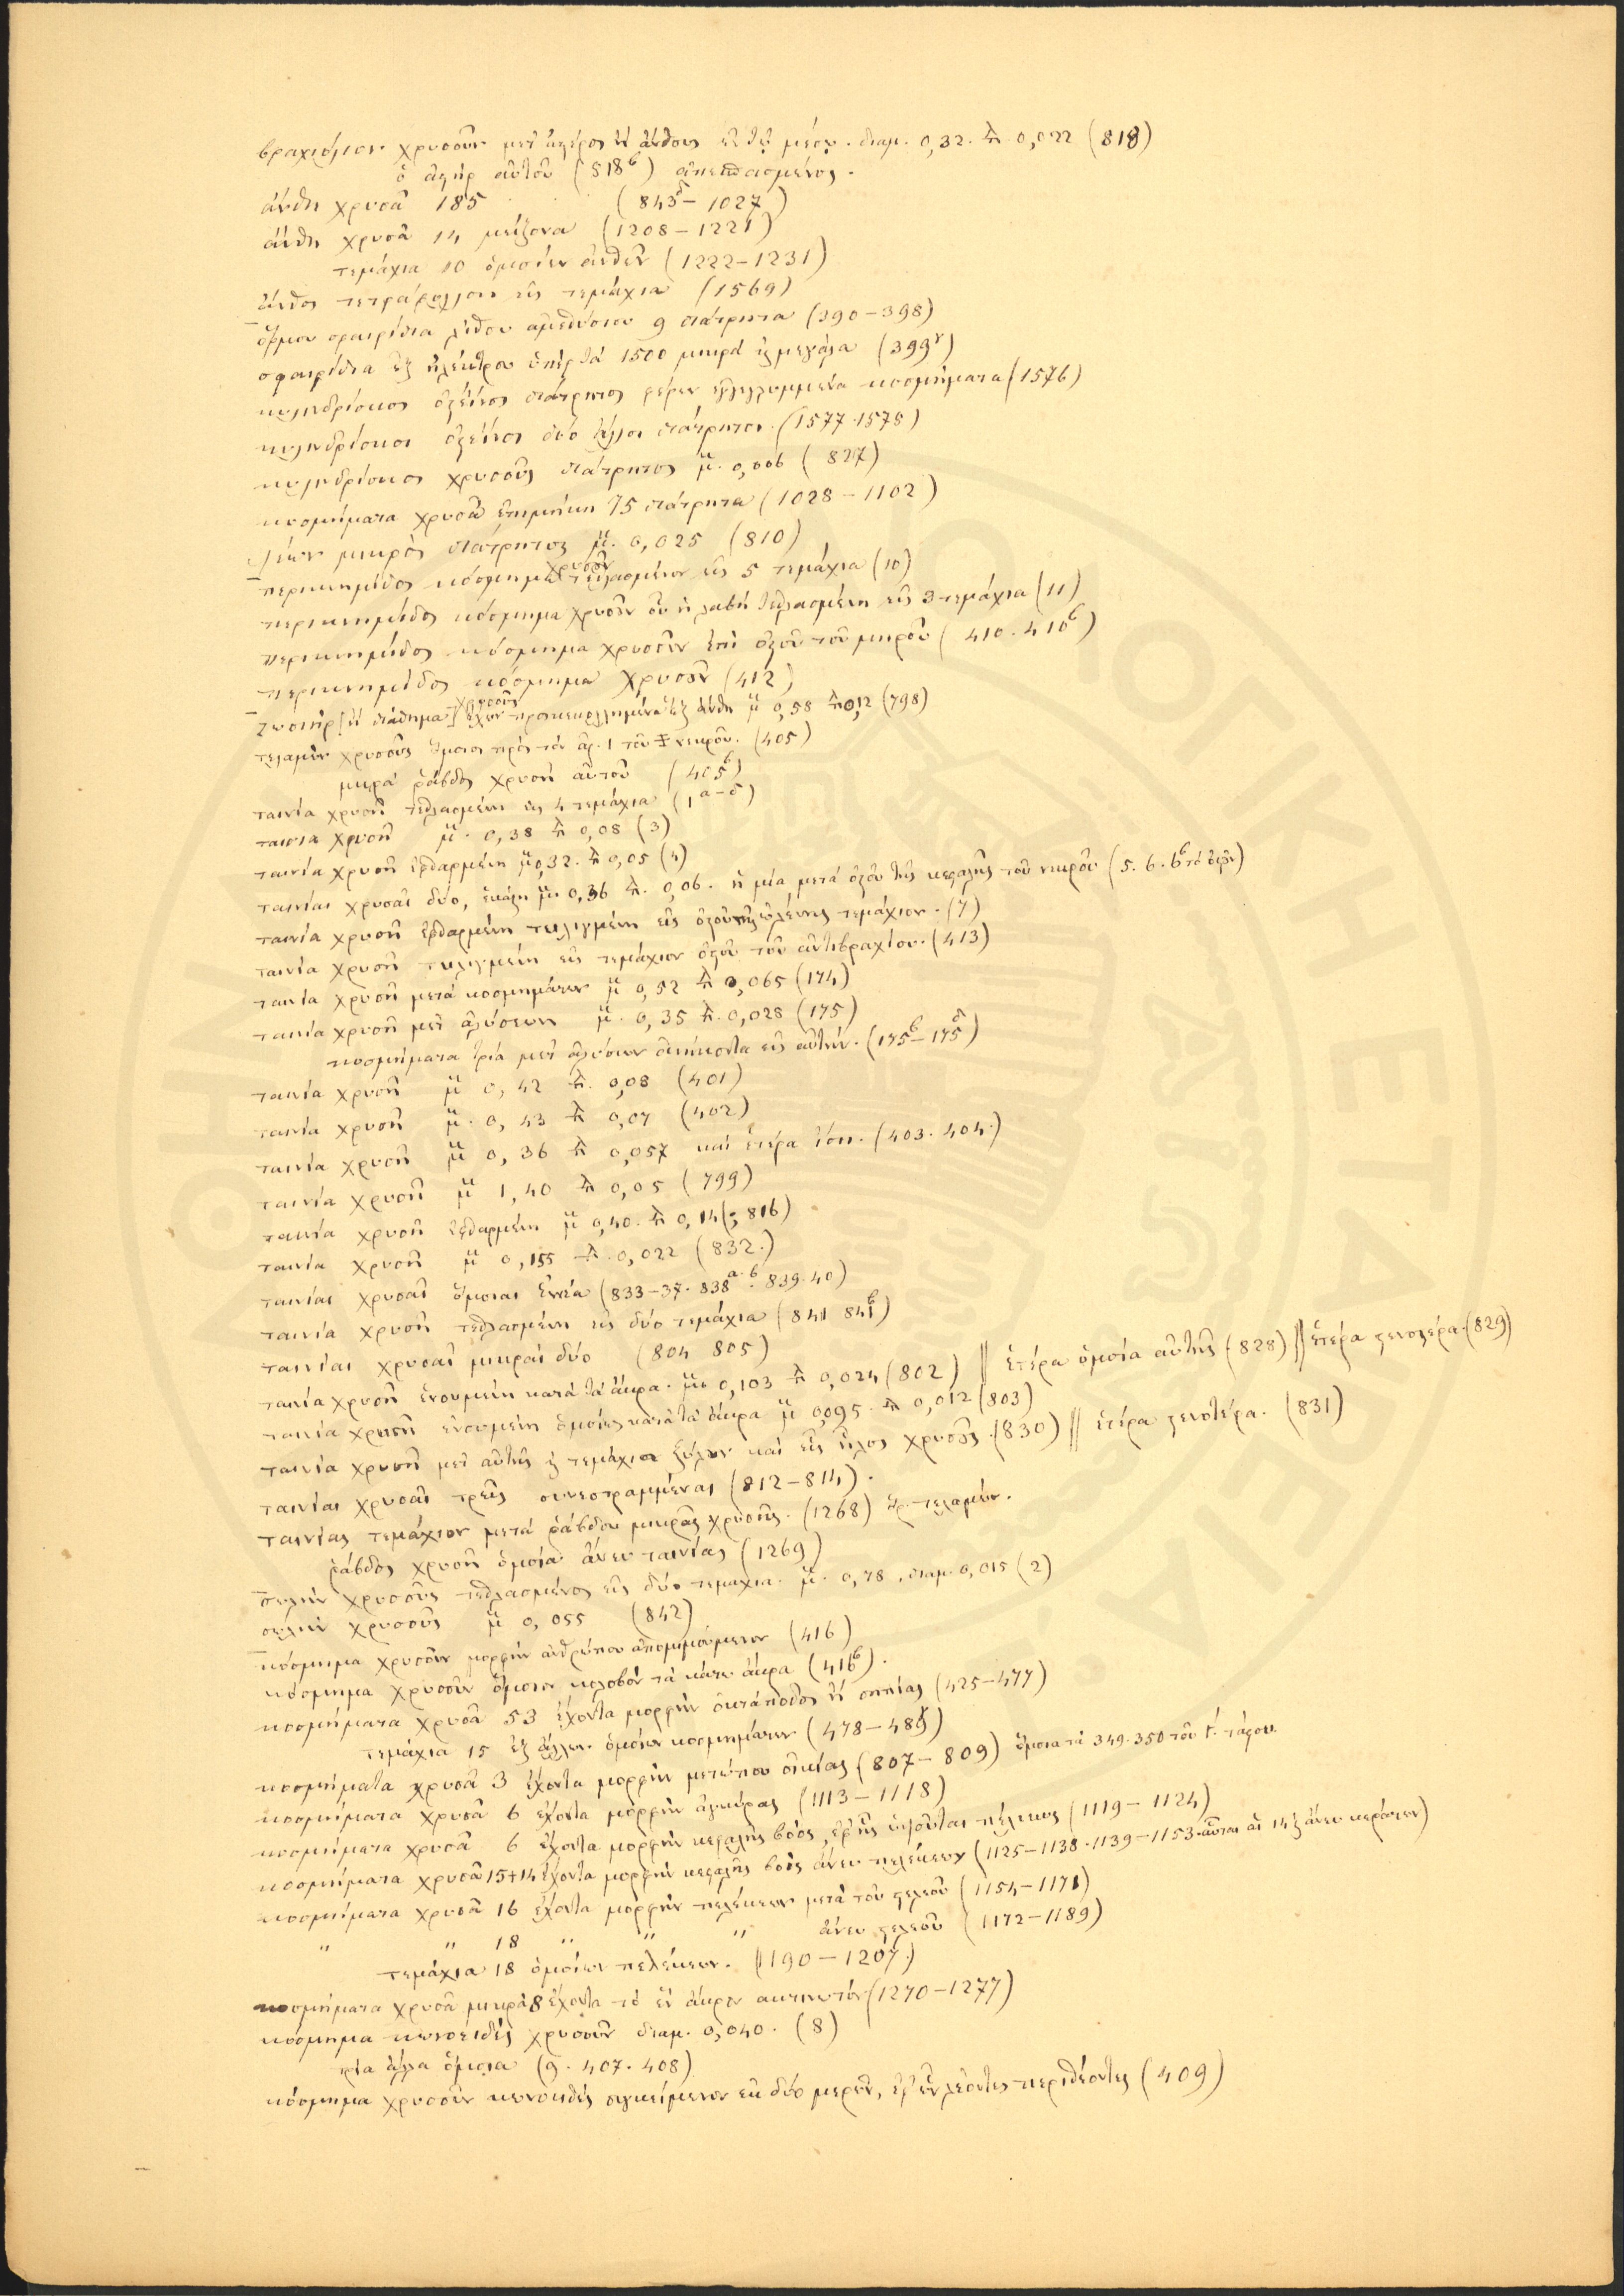 βραχιόλιον χρυσοῦν μετ' ἀστέρος ἢ ἄνθους ἐν τῷ μέσῳ. διαμ. 0,32. π. 0,022 (818)
ὁ ἀστὴρ αὐτοῦ (818β) ἀπεσπασμένος.
ἄνθη χρυσᾶ 185 (843δ – 1027)
ἄνθη χρυσᾶ 14 μείζονα (1208 – 1221)
τεμάχια 10 ὁμοίων ἀνθῶν (1222 – 1231)
ἄνθος τετράφυλλον εἰς τεμάχια (1569)
ὅρμου σφαιρίδια λίθου ἀμεθύστου 9 διάτρητα (390 – 398)
σφαιρίδια ἐξ ἠλέκτρου ὑπὲρ τὰ 1500 μικρὰ κ μεγάλα (399γ)
κυλινδρίσκος ὀστέϊνος διάτρητος φέρων ἐγγεγλυμμένα κοσμήματα (1576)
κυλινδρίσκοι ὀστέϊνοι δύο ἄλλοι διάτρητοι. (1577. 1578)
κυλινδρίσκος χρυσοῦς διάτρητος μ. 0,006 (827)
κοσμήματα χρυσᾶ ἐπιμήκη 75 διάτρητα (1028 – 1102)
λέων μικρὸς διάτρητος μ. 0,025 (810)
περικνημίδος κόσμημα χρυσοῦν τεθλασμένον εἰς 5 τεμάχια (10)
περικνημίδος κόσμημα χρυσοῦν οὗ ἡ λαβὴ τεθλασμένη εἰς 3 τεμάχια (11)
περικνημίδος κόσμημα χρυσοῦν ἐπὶ ὀστοῦ τοῦ μηροῦ (410. 410β)
περικνημίδος κόσμημα χρυσοῦν (412)
ζωστὴρ [ἢ διάδημα] χρυσοῦς ἔχων προσκεκολλημένα ἓξ ἄνθη μ 0,58 π 0,12 (798)
τελαμὼν χρυσοῦς ὅμοιος πρὸς τὸν ἀρ. 1 τοῦ Ξ νεκροῦ. (405)
μικρὰ ῥάβδος χρυσῆ αὐτοῦ (405β)
ταινία χρυσῆ τεθλασμένη εἰς 4 τεμάχια (1α–δ)
ταινία χρυσῆ μ. 0,38 π 0,08 (3)
ταινία χρυσῆ ἐφθαρμένη μ 0,32. π 0,05 (4)
ταινίαι χρυσαῖ δύο, ἑκάστη μ. 0,36 π. 0,06. ἡ μία μετὰ ὀστοῦ τῆς κεφαλῆς τοῦ νεκροῦ (5. 6. 6β τὸ ὀστοῦν)
ταινία χρυσῆ ἐφθαρμένη τυλιγμένη εἰς ὀστοῦ τῆς ὠλένης τεμάχιον. (7)
ταινία χρυσῆ τυλιγμένη εἰς τεμάχιον ὀστοῦ τοῦ ἀντιβραχίου. (413)
ταινία χρυσῆ μετὰ κοσμημάτων μ 0,52 π 0,065 (174)
ταινία χρυσῆ μετ' ἁλύσεων μ. 0,35 π. 0,028 (175)
κοσμήματα τρία μετ' ἁλύσεων ἀνήκοντα εἰς αὐτήν. (175β – 175δ)
ταινία χρυσῆ μ 0,42 π. 0,08 (401)
ταινία χρυσῆ μ. 0,43 π 0,07 (402)
ταινία χρυσῆ μ 0,36 π 0,057 καὶ ἑτέρα ἴση. (403. 404.)
ταινία χρυσῆ μ 1,40 π 0,05 (799)
ταινία χρυσῆ ἐφθαρμένη μ 0,40. π 0,14 (; 816)
ταινία χρυσῆ μ 0,155 π. 0,022 (832.)
ταινίαι χρυσαῖ ὅμοιαι ἐννέα (833–37. 838α.β. 839. 40)
ταινία χρυσῆ τεθλασμένη εἰς δύο τεμάχια (841 841β)
ταινίαι χρυσαῖ μικραὶ δύο (804 805)
ταινία χρυσῆ ἑνουμένη κατὰ τὰ ἄκρα. μ. 0,103 π 0,024 (802) || ἑτέρα ὁμοία αὐτῆς (828) || ἑτέρα στενοτέρα. (829)
ταινία χρυσῆ ἑνουμένη ὁμοίως κατὰ τὰ ἄκρα μ 0,095. π 0,012 (803)
ταινία χρυσῆ μετ' αὐτῆς τεμάχιον ξύλου καὶ εἷς ἧλος χρυσοῦς. (830) || ἑτέρα στενοτέρα. (831)
ταινίαι χρυσαῖ τρεῖς συνεστραμμέναι (812 – 814).
ταινίας τεμάχιον μετὰ ῥάβδου μικρᾶς χρυσῆς. (1268) πρ. τελαμών.
ῥάβδος χρυσῆ ὁμοία ἄνευ ταινίας (1269)
σωλὴν χρυσοῦς τεθλασμένος εἰς δύο τεμάχια. μ. 0,78. διαμ. 0,015 (2)
σωλὴν χρυσοῦς μ 0,055 (842)
κόσμημα χρυσοῦν μορφὴν ἀνθρώπου ἀπομιμούμενον (416)
κόσμημα χρυσοῦν ὅμοιον κολοβὸν τὰ κάτω ἄκρα (416β).
κοσμήματα χρυσᾶ 53 ἔχοντα μορφὴν ὀκτάποδος ἢ σηπίας (425 – 477)
τεμάχια 15 ἐξ ἄλλων ὁμοίων κοσμημάτων (478 – 489)
κοσμήματα χρυσᾶ 3 ἔχοντα μορφὴν μετώπου οἰκίας (807 – 809) ὅμοια τὰ 349. 350 τοῦ Γ'. τάφου.
κοσμήματα χρυσᾶ 6 ἔχοντα μορφὴν ἀγκύρας (1113 – 1118)
κοσμήματα χρυσᾶ 6 ἔχοντα μορφὴν κεφαλῆς βοός, ἐφ' ἧς ὑψοῦται πέλεκυς (1119 – 1124)
κοσμήματα χρυσᾶ 15+14 ἔχοντα μορφὴν κεφαλῆς βοὸς ἄνευ πελέκεων (1125 – 1138. 1139 – 1153. αὗται αἱ 14 ἄνευ κεράτων)
κοσμήματα χρυσᾶ 16 ἔχοντα μορφὴν πελέκεων μετὰ τοῦ στελεοῦ (1154 – 1171)
" " 18 " " " ἄνευ στελεοῦ (1172 – 1189)
τεμάχια 18 ὁμοίων πελέκεων. (1190 – 1207.)
κοσμήματα χρυσᾶ μικρὰ 8 ἔχοντα τὸ ἓν ἄκρον ἀκτινωτόν (1270 – 1277)
κόσμημα κωνοειδὲς χρυσοῦν διαμ. 0,040. (8)
τρία ἄλλα ὅμοια (9. 407. 408)
κόσμημα χρυσοῦν κωνοειδὲς συγκείμενον ἐκ δύο μερῶν, ἐφ' ὧν λέοντες περιθέοντες (409)